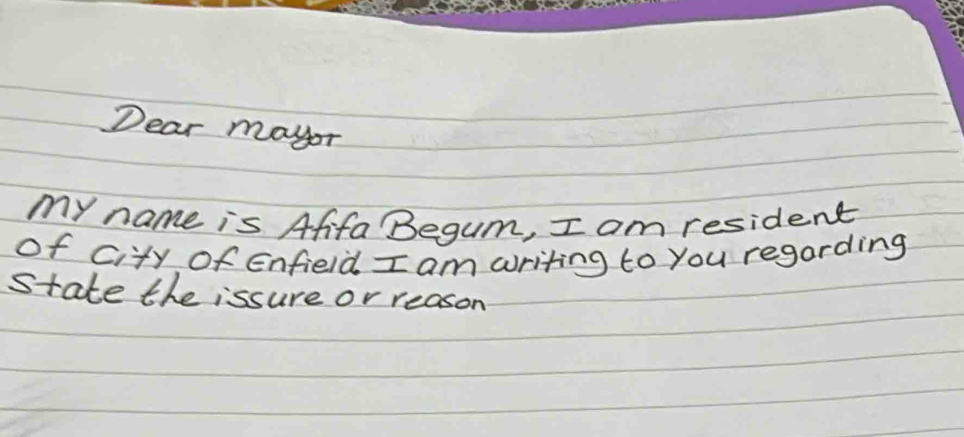 Dear mayor
My name is Afifa Begum, I am resident
of City of Enfield I am writing to you regarding
State the issure or reason